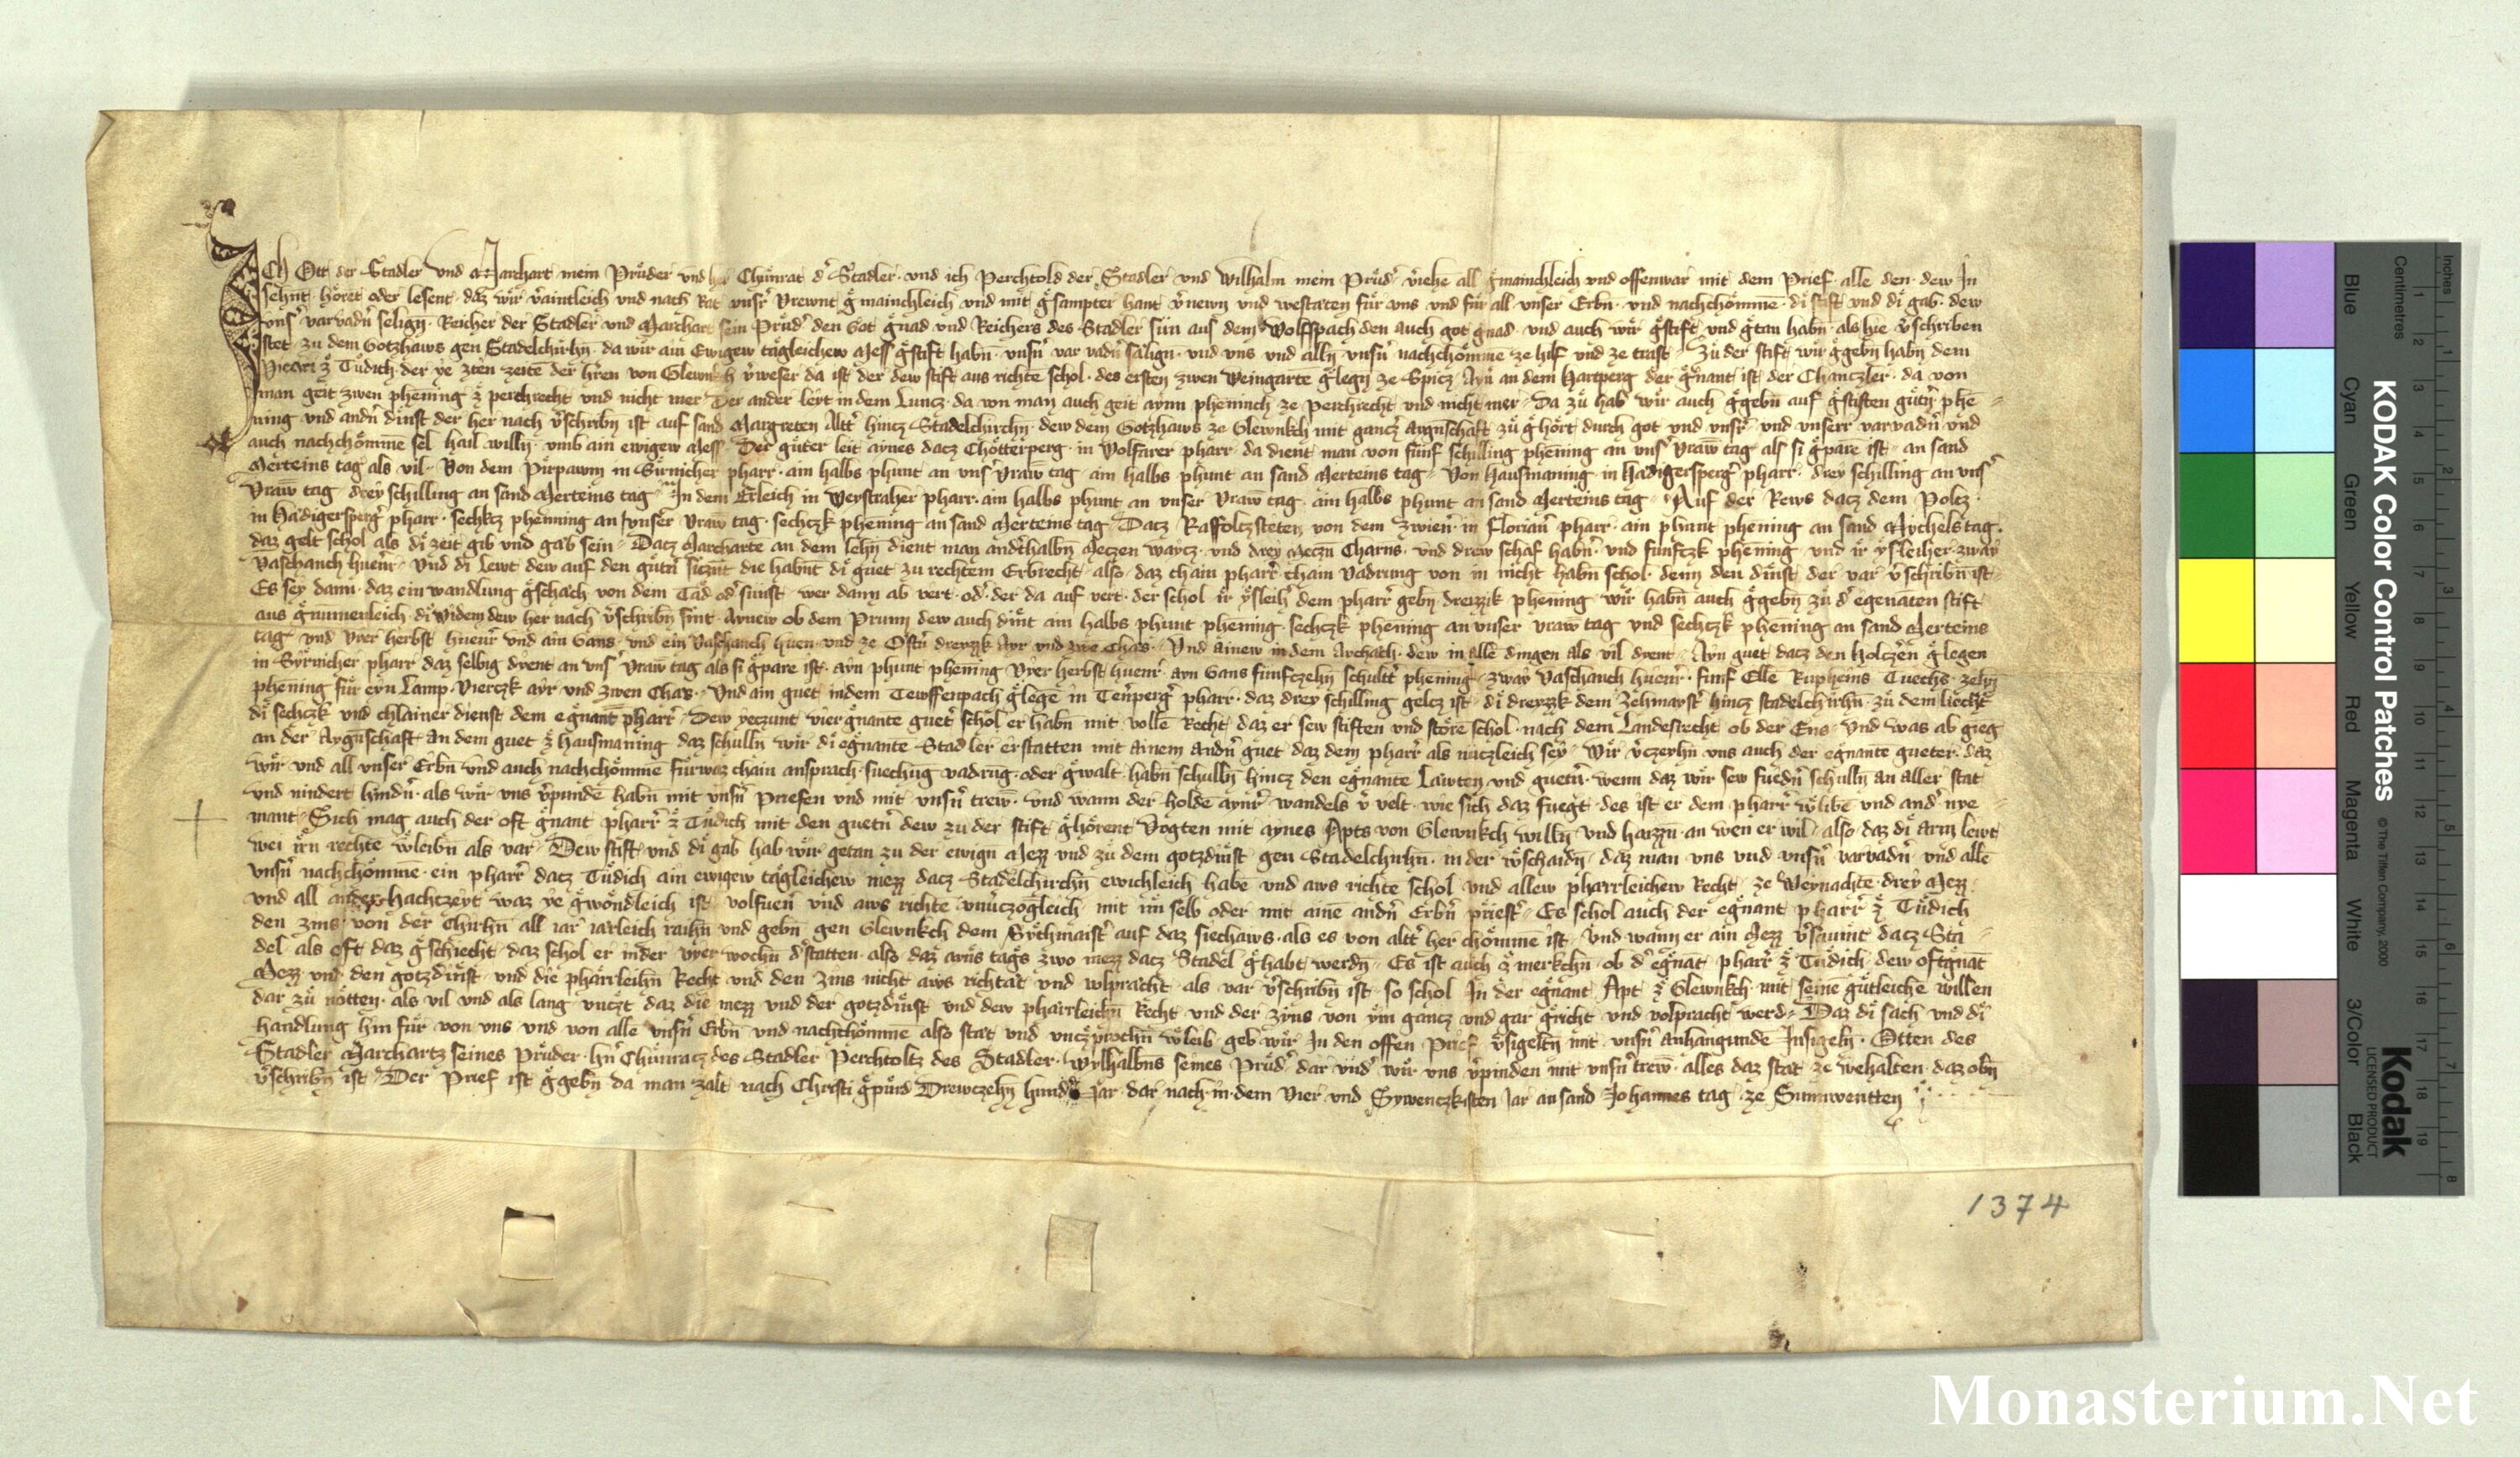 ICh Ott der Stadler und Marchart mein Prüder und her Chunrat d' Stadler · und ich Perchtold der Stadler und Wilhalm mein Prüd' v'iehe all g'mainchleich und offenwar mit dem Prief · alle den · dew In
sehnt · höret oder lesent · daz wir v'aintleich und nach Rat unsr' Vrewnt g'mainchleich und mit g'sampter hant v'newn und westäten für uns und für all unser Erbn̄ · und nachchömme̅ · di stift und di gab · dew
uns' varvadn' selign̄ · Reicher der Stadler und Marchart sein Prüd' den Got g'nad und Reichers des Stadler sün aus dem Wolfspach den auch got gnad · und auch wir g'stift und g'tan habn̄ · als hie v'schriben
stet · zu dem Gotzhaws gen Stadelchirhn̄ · da wir ain Ewigew tägleichew Mess g'stift habn̄ · unsn' var vadn' sälign · und uns und alln̄ unsn' nachchömme ze hilf und ze trast · Zu der stift wir g'gebn̄ habn̄ dem
Vicari z' Tüdich · der ye zten zeite der h'ren von Glewnkch v'weser da ist der dew stift aus richte schol · des ersten zwen Weingarte̅ g'legn̄ ze Spicz · Ayn̄ an dem Hartperg der g'nant ist der Chanczler · da von
man geit zwen phening z' perchrecht und nicht mer Der ander leyt in dem Luncz · da von man auch geit aynn pheninch ze Perchrecht und nicht mer · Da zü hab wir auch g'gebn̄ auf g'stiften gütn' phe=
ning und andn' dinst der her nach v'schribn̄ ist auf sand Margreten Altt' hincz Stadelchirchn̄ · dew dem Gotzhaws ze Glewnkch mit gancz' aygnschaft zü g'hört durch got und unsr' und unserr varvadn' und
auch nachchömme̅ sel hail willn̄ · umb ain ewigew Mess · Der güter leit aynes dacz Chötterperg · in Wolfarer pharr · da dient man von fünf schilling phening an uns' Vraw̅ tag als si g'pare ist · an sand
Merteins tag als vil · Von dem Pirpawm̄ in Sirnicher pharr · ain halbs phunt an uns' Vraw̅ tag ain halbs phunt an sand Merteins tag · Von Hausmaning · in Hädigersperg' pharr · drey schilling an uns'
Vraw̅ tag drey schilling an sand Merteins tag · In dem Erleich in Weystraher pharr · ain halbs phunt an unser Vraw̅ tag · ain halbs phunt an sand Merteins tag · Auf der Rews dacz dem Poltz ·
in Hädigersperg' pharr · sechkcz phenning an unser Vraw̅ tag · sechczk phening an sand Merteins tag · Datz Raffoltzsteten von dem Zwien' in Florian' pharr · ain phunt phening an sand Mychels tag ·
daz gelt schol als di zeit gib und gäb sein · Dacz Marcharte̅ an dem lehn̄ dient man andthalbn̄ Meczen waycz · und drey Meczn Charns · und drew schaf habn' · und funfczk phening · und ir ysleiher · zway
Vaschanch huenr' · Und di Lewt dew auf den gütn' siczunt die habnt di guet zu rechtem Erbrecht · also · daz chain pharr' chain Vadrung von in nicht habn̄ schol · denn̄ den dinst · der var v'schribn̄ ist ·
Es sey dann · daz ein wandlung g'schäch von dem Tad od' sünst · wer dann ab vert · od' der da auf vert · der schol ir ysleih' dem pharr' gebn̄ dreyzzk phening · wir habn̄ auch g'gebn̄ zu d' egenāten stift
aus g'numenleich · di widem dew her nach v'schribn̄ sint · Aynew ob dem Prunn̄ dew auch dint ain halbs phunt phening · sechczk phening an unser vraw̅ tag und sechczk phening an sand Merteins
tag · und vyer herbst huenr' und ain Gans · und ein Vaschanch huen · und ze Ostn' dreyzzk Ayr und zwe Chäs · Und ainew in dem Aychach · dew in alle̅ dingen als vil dyent · Ayn guet dacz den Holczern g'legen
in Syrnicher pharr daz selbig dyent an uns' vraw̅ tag als si g'pare ist · ayn phunt phening · vyer herbst huenr' · ayn Gans fünfczehn̄ schultt' phening · zway Vaschanch huenr' · fünf Elle̅ Rupheins Tuechs · zehn̄
phening für eyn Lamp · vierczk ayr und zwen Chäs · Und ain guet in dem Tewffenpach g'lege̅ in Ternperg' pharr · daz drey schilling geltz ist · di dreyzzk dem Zehmayst' hincz Stadelchirhn̄ · zü dem liecht
di sechczk und chlainer dienst dem egnant pharr' · Dew yeczunt vier g'nante̅ guet' schol er habn̄ mit volle̅ Recht · daz er sew stiften und störe̅ schol · nach dem Landesrecht ob der Ens · Und was ab gieg
an der Aygnschaft an dem guet z' Hausmaning daz schulln̄ wir di egnante Stadler erstatten mit ainem andn' guet daz dem pharr' als nuczleich sey · Wir v'czeyhn̄ uns auch der egnante gueter · daz
wir und all unser Erbn̄ und auch nachchömme̅ fürwaz chain ansprach · suechu̅g vadru̅g · oder g'walt habn̄ schulln̄ hincz den egnante Läwten und guetn' · wenn daz wir sew fuedn' schulln̄ an aller stat
und nindert hindn' · als wir uns v'punde̅ habn̄ mit unsn' Priefen und mit unsn' trew̅ · und wann der holde̅ aynr' wandels v'velt · wie sich daz fuegt · des ist er dem pharr' v'libe̅ und and' nye=
mant · Sich mag auch der oft gnant pharr' z' Tüdich mit den guetn' dew zu der stift g'hörent Vogten mit aynes Apts von Glewnkch willn̄ und haizzn · an wen er wil · also · daz di arm̄ lewt
wei irn rechte̅ w'leibn̄ als var · Dew stift und di gab hab wir getan zu der ewign̄ Mezz und zü dem gotzdinst gen Stadelchirhn̄ · in der w'schaidn̄ · daz man uns und unsn' varvadn' und alle̅
unsn' nachchömme̅ · ein pharr' dacz Tüdich ain ewigew tägleichew mezz dacz Stadelchirchn̄ ewichleich habe und aws richte schol und allew pharrleichew Recht · ze Weynachte̅ · drey Mezz
und all ander Hachtczeyt waz ye g'wöndleich ist volfuen' und aws richte unuczogleich mit im selb oder mit aine̅ andn' Erbn' priest' · Es schol auch der egnant pharr' z' Tüdich
den zins · von der Chirhn̄ all iar iarleich raihn̄ und gebn̄ gen Glewnkch dem Sychmaist' auf daz siechaws · als es von altt' her chömme̅ ist · Und wann er ain Mezz v'saumt dacz Sta=
del als oft daz g'schiecht · daz schol er in der vyer wochn̄ d'statten · also · daz ayns tags zwo mezz dacz Stadel g'habt werdn̄ · Es ist auch z' merkchn̄ · ob d' egnāt pharr' z' Tüdich · dew oftgnāt
Mezz und den gotzdinst · und die pharrleihn̄ Recht und den zins nicht aws richtät und volprächt · als var v'schribn̄ ist · so schol In der egnant Apt z' Glewnkch mit seine̅ gütleiche̅ willen
dar zü nötten · als vil und als lang unczt daz die mezz und der gotzdinst und dew pharrleichn̄ Recht und der zyns von ym gancz und gar g'richt und volpracht werd · Daz di sach und di
handlung hin für von uns und von alle̅ unsn' Erbn̄ und nachchömme̅ also stät und unczprochn̄ w'leib · geb wir In den offen Prief v'sigeltn̄ mit unsn' anhangunde̅ Insigeln̄ · Otten des
Stadler Marchartz seines Prüder · hn' Chunracz des Stadler Perchtoltz des Stadler · Wylhalbms seines Prüd' · dar und' wir uns v'pinden mit unsn' trew̅ · alles daz stät ze wehalten · daz obn̄
v'schribn̄ ist · Der Prief ist g'gebn̄ da man zalt nach Christi g'purd Drewczehn̄ hund't Jar · dar nach in dem Vier und Sywenczkisten Jar an sand Johannes tag ze Sunnwentten
1374
Monasterium.Net
KODAK Color Control Patches
© The Tiffen Company, 2000
Kodak
LICENSED PRODUCT
Blue
Cyan
Green
Yellow
Red
Magenta
White
3/Color
Black
Centimetres
Inches